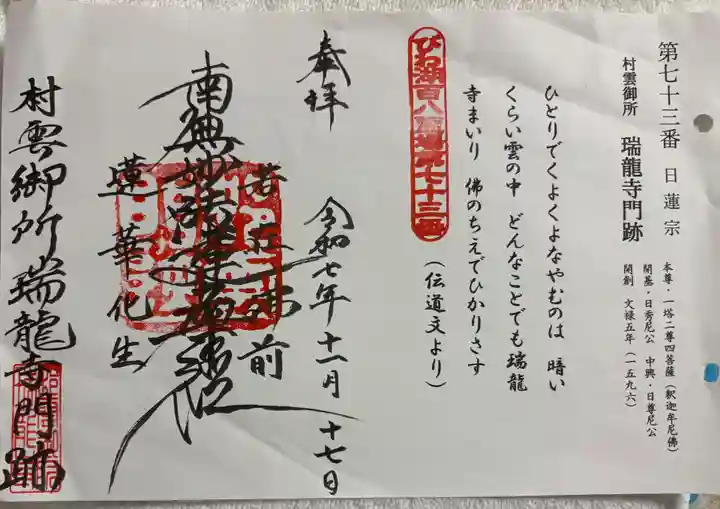 第七十三番 日蓮宗
村雲御所 瑞龍寺門跡
本尊・一塔二尊四菩薩(釈迦牟尼佛)
開基・日秀尼公 中興・日尊尼公
開創 文禄五年(一五九六)
ひとりでくよくよなやむのは 暗い
くらい雲の中 どんなことでも瑞龍
寺まいり 佛のちえでひかりさす
(伝道文より)
びわ湖百八霊場第七十三番
奉拝 令和七年十一月十七日
若在佛前
南無妙法蓮華経
蓮華化生
村雲御所瑞龍寺門跡